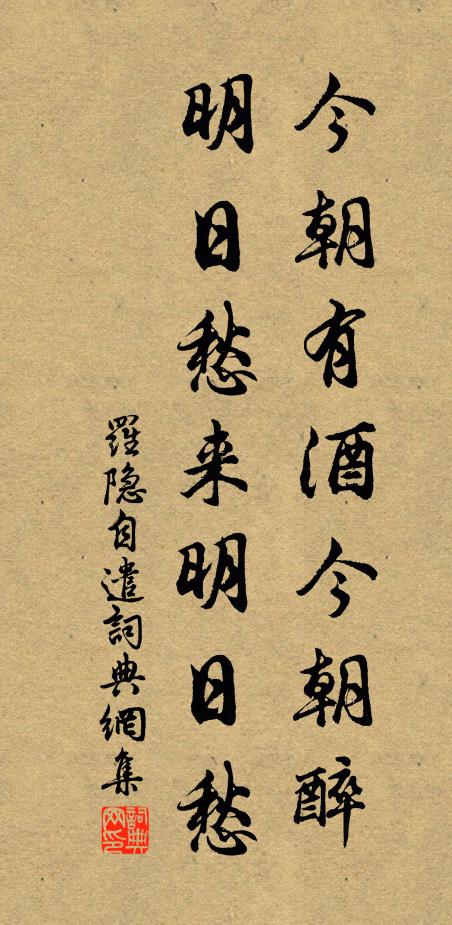 今朝有酒今朝醉
明日愁来明日愁
羅隐自遣詞典網集
詞典網印